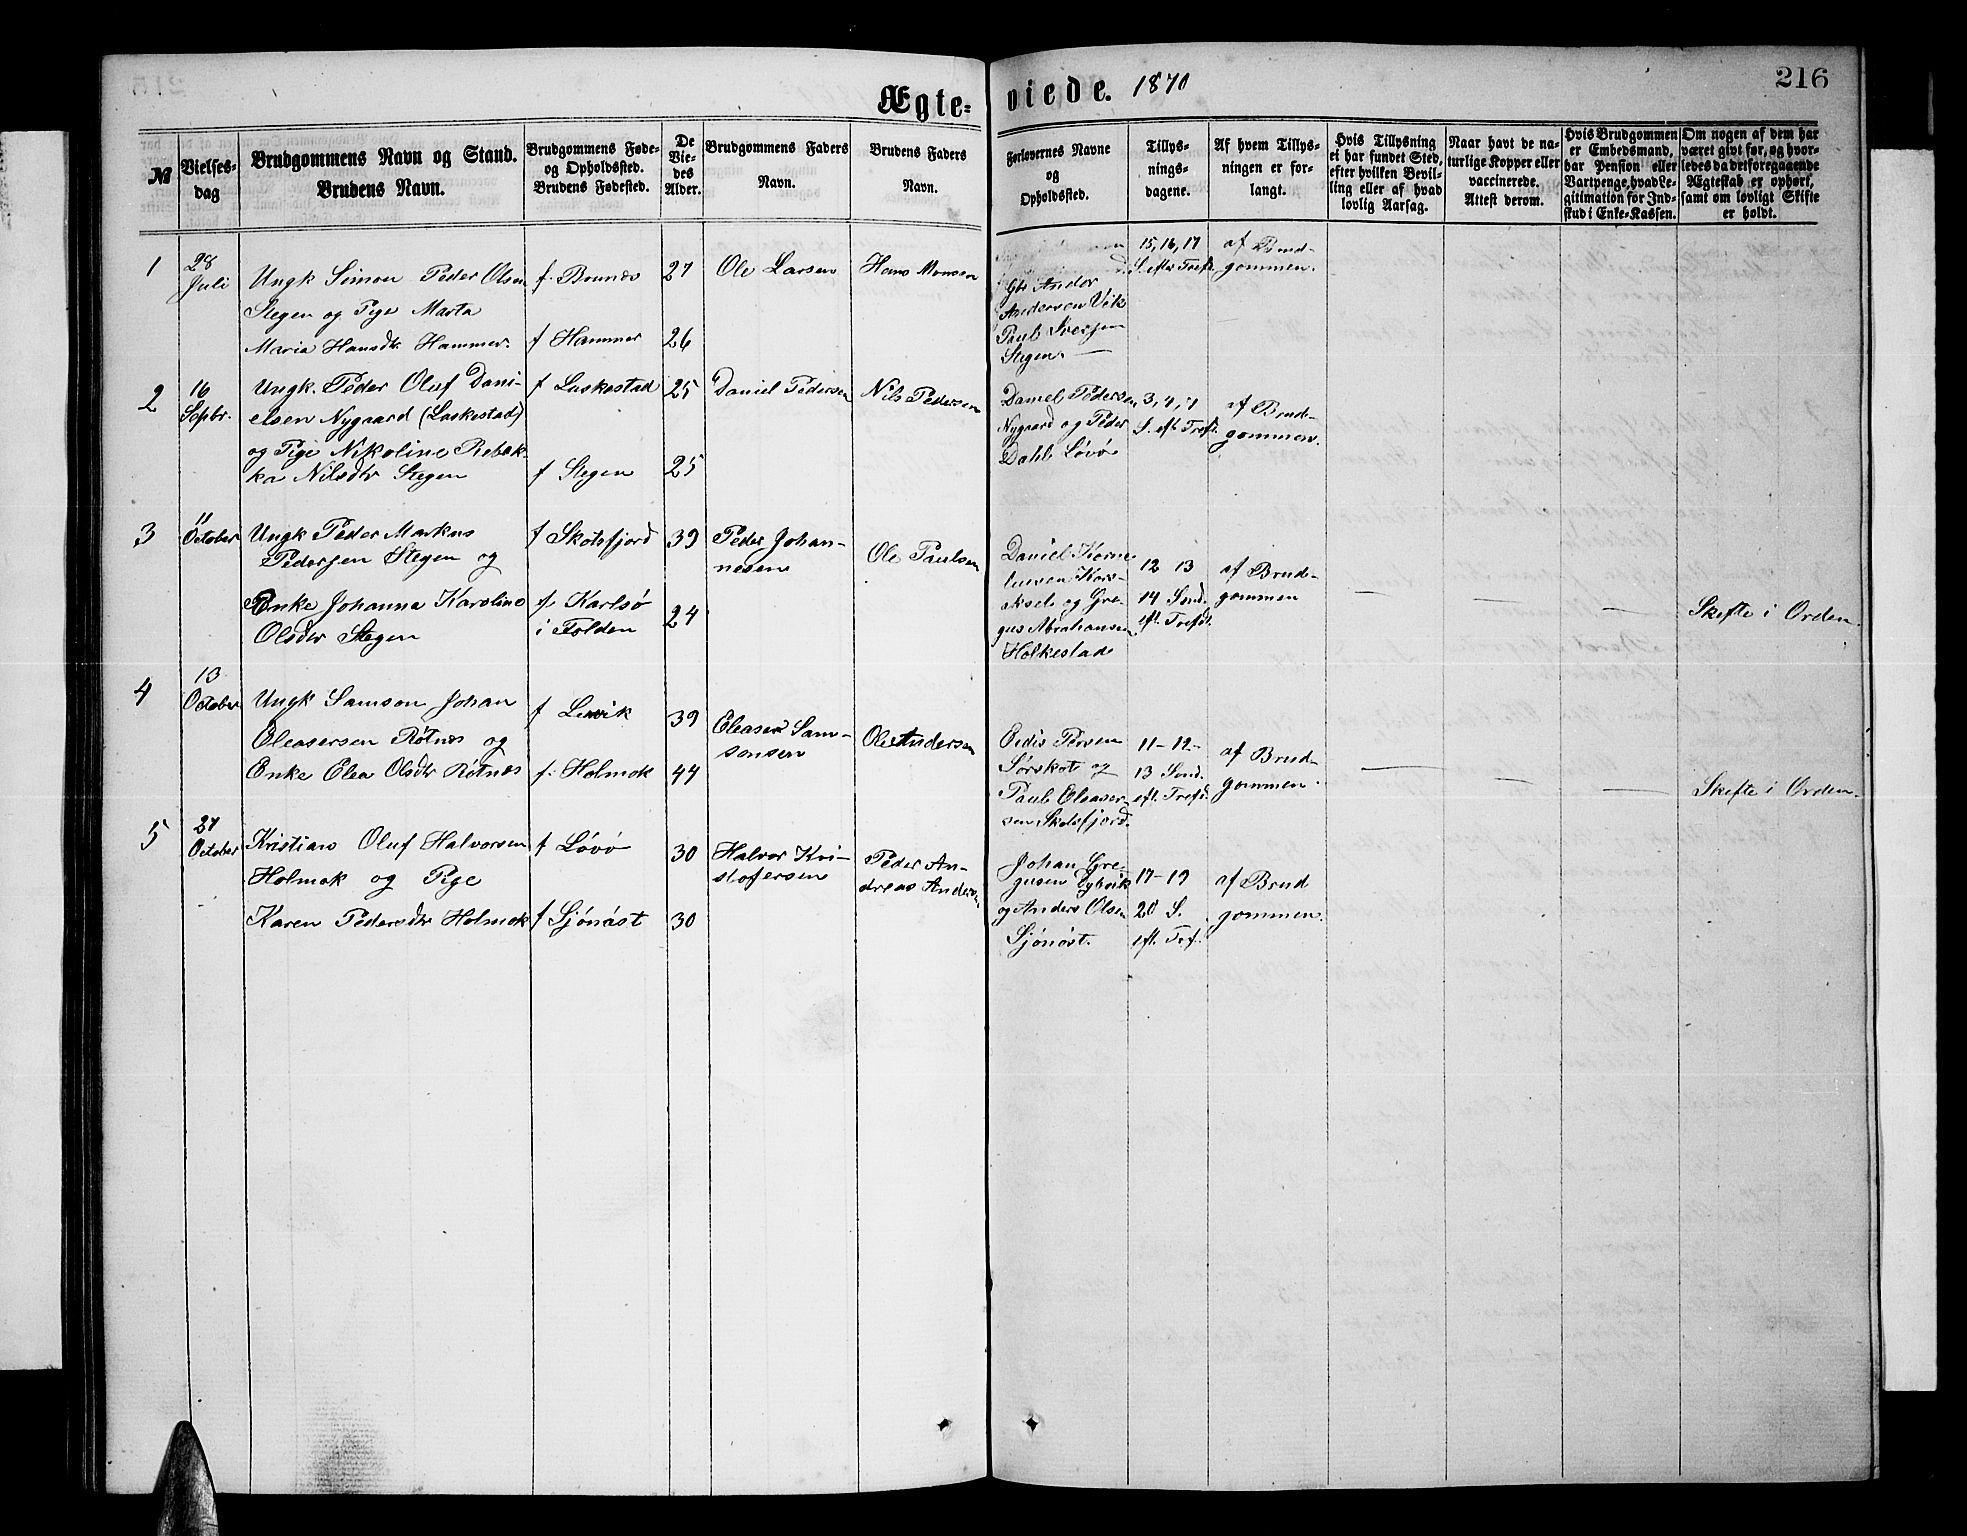 Ægte-
viede. 1870
216
№
Vielses-
dag
Brudgommens Navn og Stand.
Brudens Navn.
Brudgommens Føde-
og Opholdssted.
Brudens Fødested.
De
Vie-
des
Alder.
Brudgommens Faders
Navn.
Brudens Faders
Navn.
Forlovernes Navne
og
Opholdssted.
Tillys-
nings-
dagene.
Af hvem Tillys-
ningen er for-
langt.
Hvis Tillysning
ei har fundet Sted,
efter hvilken Bevil-
ling eller af hvad
lovlig Aarsag.
Naar havt de na-
turlige Kopper eller
vaccinerede.
Attest derom.
Hvis Brudgommen
er Embedsmand,
har Pension eller
Vartpenge, hvad Le-
gitimation for Ind-
skud i Enke-Kassen.
Om nogen af dem har
været givt før, og hvor-
ledes da det foregaaende
Ægteskab er ophørt,
samt om lovligt Skifte
er holdt.
1
28
Juli
Ungk Simon Peder Olsen
Stegen og Pige Marta
Maria Hansdtr Hammer.
f. Brunes
f Hammer
27
26
Ole Larsen
Hans Monsen
Gbr Ander
Andersen Vik
Paul Iversen
Stegen. —
15, 16, 17
S. efter Treft.
af Brud-
gommen.
2
16
Sepbr.
Ungk. Peder Oluf Dani-
elsen Nygaard (Laskestad)
og Pige Nikoline Rebek-
ka Nilsdtr Stegen
f Laskestad
f Stegen
25
25
Daniel Pedersen
Nils Pedersen
Daniel Pedersen
Nygaard og Peder
Dahl Løvø
3, 4, 7
S. eft Treft.
af Brud-
gommen.
3
11
October
Ungk Peder Markus
Pedersen Stegen og
Enke Johanna Karoline
Olsdtr Stegen
f Skotsfjord
f. Karlsø
i Folden
39
24
Peder Johan-
nesen
Ole Paulsen
Daniel Korne
liusen Kors-
og Gre-
gus Abrahamsen
Holkestad
12 13
14 Sond.
eft. Trefdt.
af Brud-
gommen
— — —
Skifte i Orden.
4
13
October
Ungk Samson Johan
Eleasersen Røtnes og
Enke Elea Olsdtr Røtnes
f Levik
f. Holmok
39
44
Eleaser Sam-
sonsen
Ole Andersen
Persen
Sørskot og
Paul Eleaser-
sen Skotsfjord.
11 - 12 -
13 Sond.
eft. Trefd.
af Brud-
gommen
— — —
Skifte i Orden.
5
27
October
Kristian Oluf Halvorsen
Holmok og Pige
Karen Pedersdtr Holmok
f Løvø
f Sjönäst
30
30
Halvor Kri-
stofersen
Peder An-
dreas Anders
Johan Gre-
gusen
og Anders Olsen
Sjönöst.
17 - 19
20 S.
eft. Tref.
af Brud
gommen.